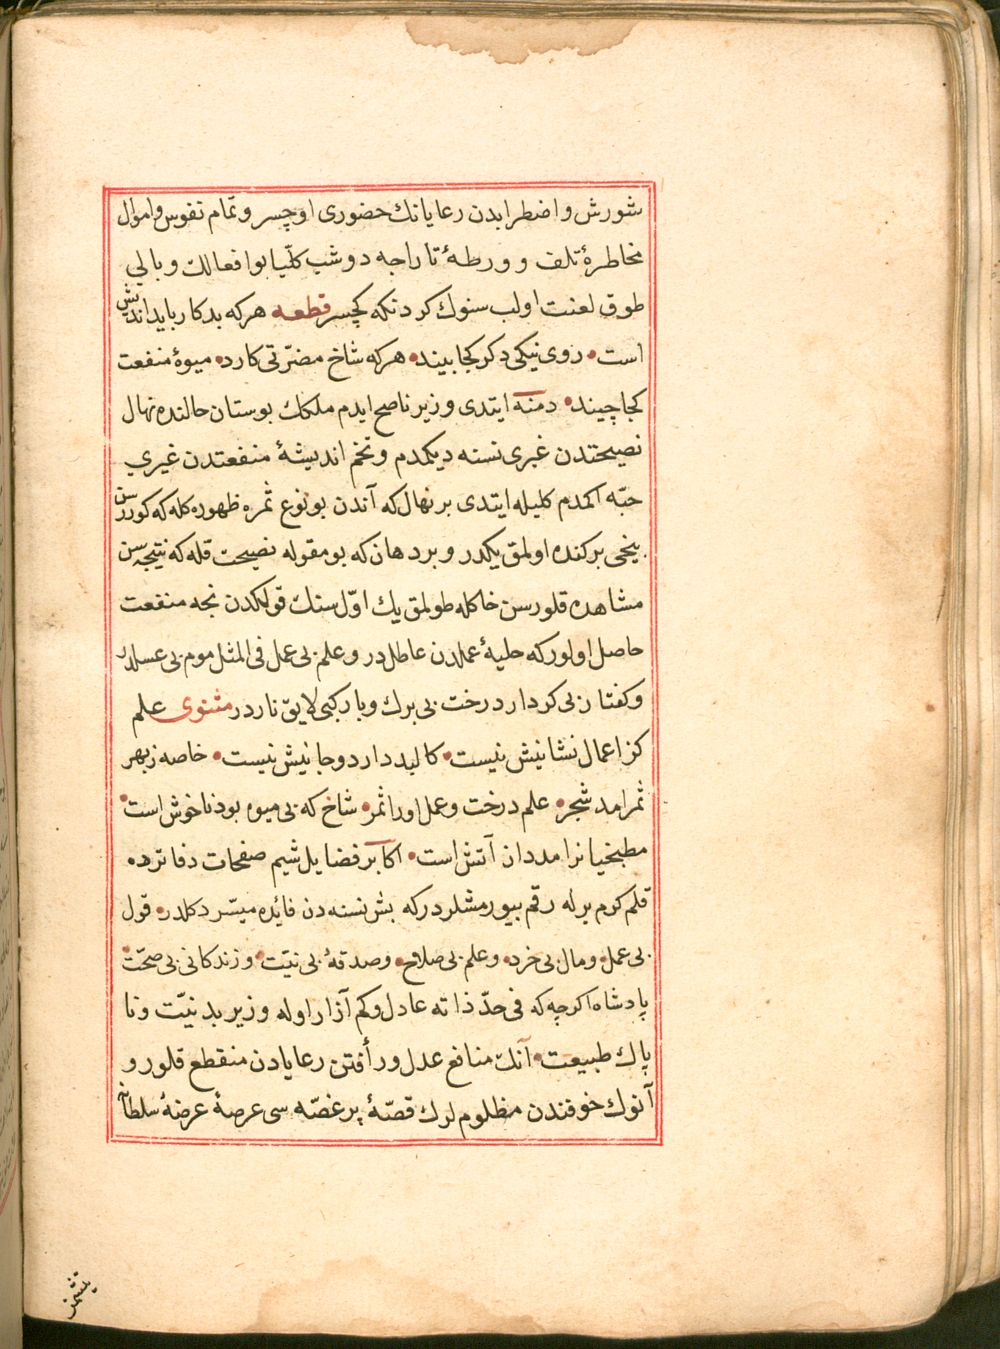 شورش و اضطرابدن رعایانك حضوری اوچسر و تمام نفوس و اموال
مخاطرهٔ تلف و ورطهٔ تاراجه دوشب كلّیا بو افعالك وبالی
طوق لعنت اولب سنوك كردنكه كچسر قطعه هركه بدكار باید اندیش
است روی نیكی دكر كجا بیند هركه شاخ مضرّتی كارد میوهٔ منفعت
كجا چیند دمنه ایتدی وزیر ناصح ایدم ملكك بوستان حالنده نهال
نصیحتدن غیری نسنه دیكمدم و تخم اندیشهٔ منفعتدن غیری
حبّه اكمدم كلیله ایتدی بر نهال كه آندن بو نوع ثمره ظهوره كله كه كوررسن
بیخی بركنده اولمق یكدر و بر دهان كه بو مقوله نصیحت قله كه نتیجه سن
مشاهده قلورسن خاكله طولمق یك اوّل سنك قولكدن نجه منفعت
حاصل اولور كه حلیهٔ عملدن عاطلدر و علم بی عمل فی المثل موم بی عسلدر
و كفتار بی كردار درخت بی برك و بار كبی لایق ناردر مثنوی علم
كز اعمال نشانیش نیست كالبد دارد و جانیش نیست خاصه ز بهر
ثمر امد شجر علم درخت و عمل اورا ثمر شاخ كه بی میوه بود ناخوش است
مطبخیانرا مددان آتش است اكابر فضایل شیم صفحات دفاترده
قلم كرم برله رقم بیورمشلردر كه بش نسنه دن فائده میسّر دكلدر قول
بی عمل و مال بی خرد و علم بی صلاح و صدقهٔ بی نیّت و زندكانی بی صحّت
پادشاه اكرچه كه فی حدّ ذاته عادل و كم آزار اوله وزیر بد نیّت و نا
پاك طبیعت آنك منافع عدل و رأفتن رعایادن منقطع قلور و
آنوك خوفندن مظلوم لرك قصّهٔ پر غصّه سی عرصهٔ عرضهٔ سلطانه